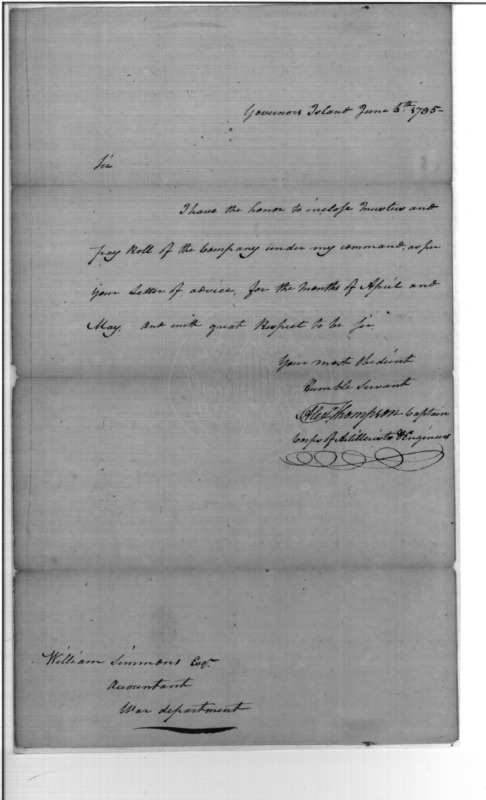 Governors Island June 6th 1795-
Sir
I have the honor to inclose Musters and
pay Roll of the Company under my command, as per
your Letter of advice, for the Months of April and
May. And with great Respect to be Sir.
Your most Obedient
Humble Servant
Alex Thompson Captain
Corps of Artillerists & Engineers
William Simmons Esqr.
Accountant
War department